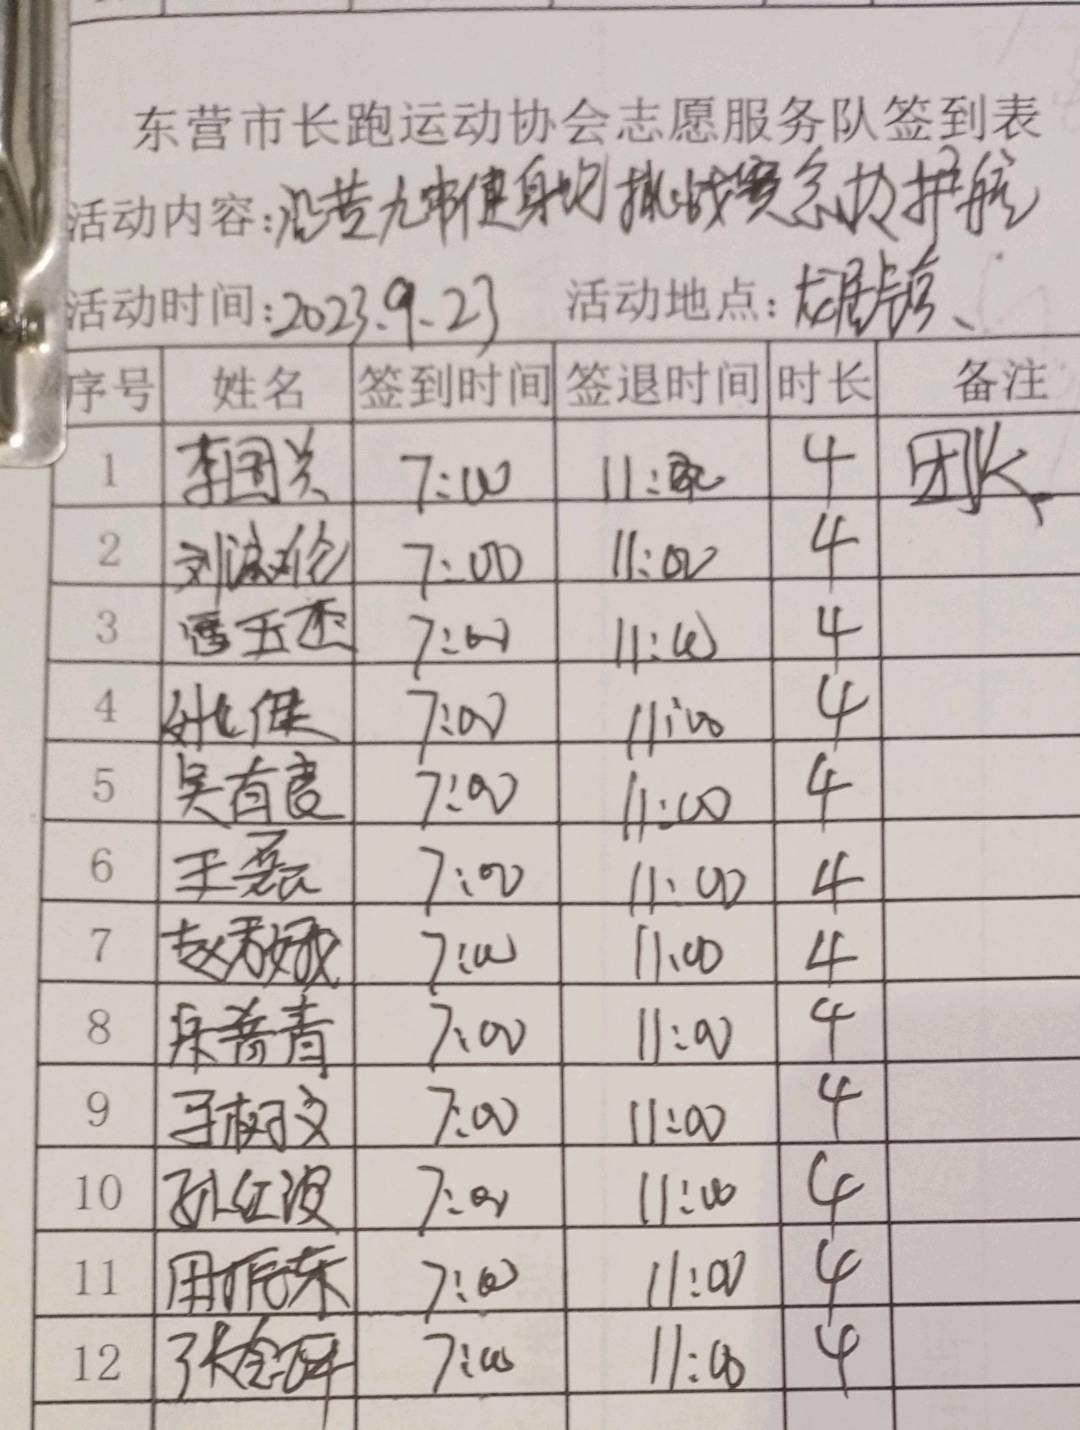 东营市长跑运动协会志愿服务队签到表
活动内容:沿黄九市健身跑挑战赛急救护航
活动时间:2023.9.23 活动地点:龙居
序号 姓名 签到时间 签退时间 时长 备注
1 李国兴 7:00 11:00 4 团长
2 刘 7:00 11:00 4
3 7:00 11:00 4
4 7:00 11:00 4
5 吴有良 7:00 11:00 4
6 王磊 7:00 11:00 4
7 赵秀娥 7:00 11:00 4
8 青 7:00 11:00 4
9 树文 7:00 11:00 4
10 孙红波 7:00 11:00 4
11 周振东 7:00 11:00 4
12 张 7:00 11:00 4